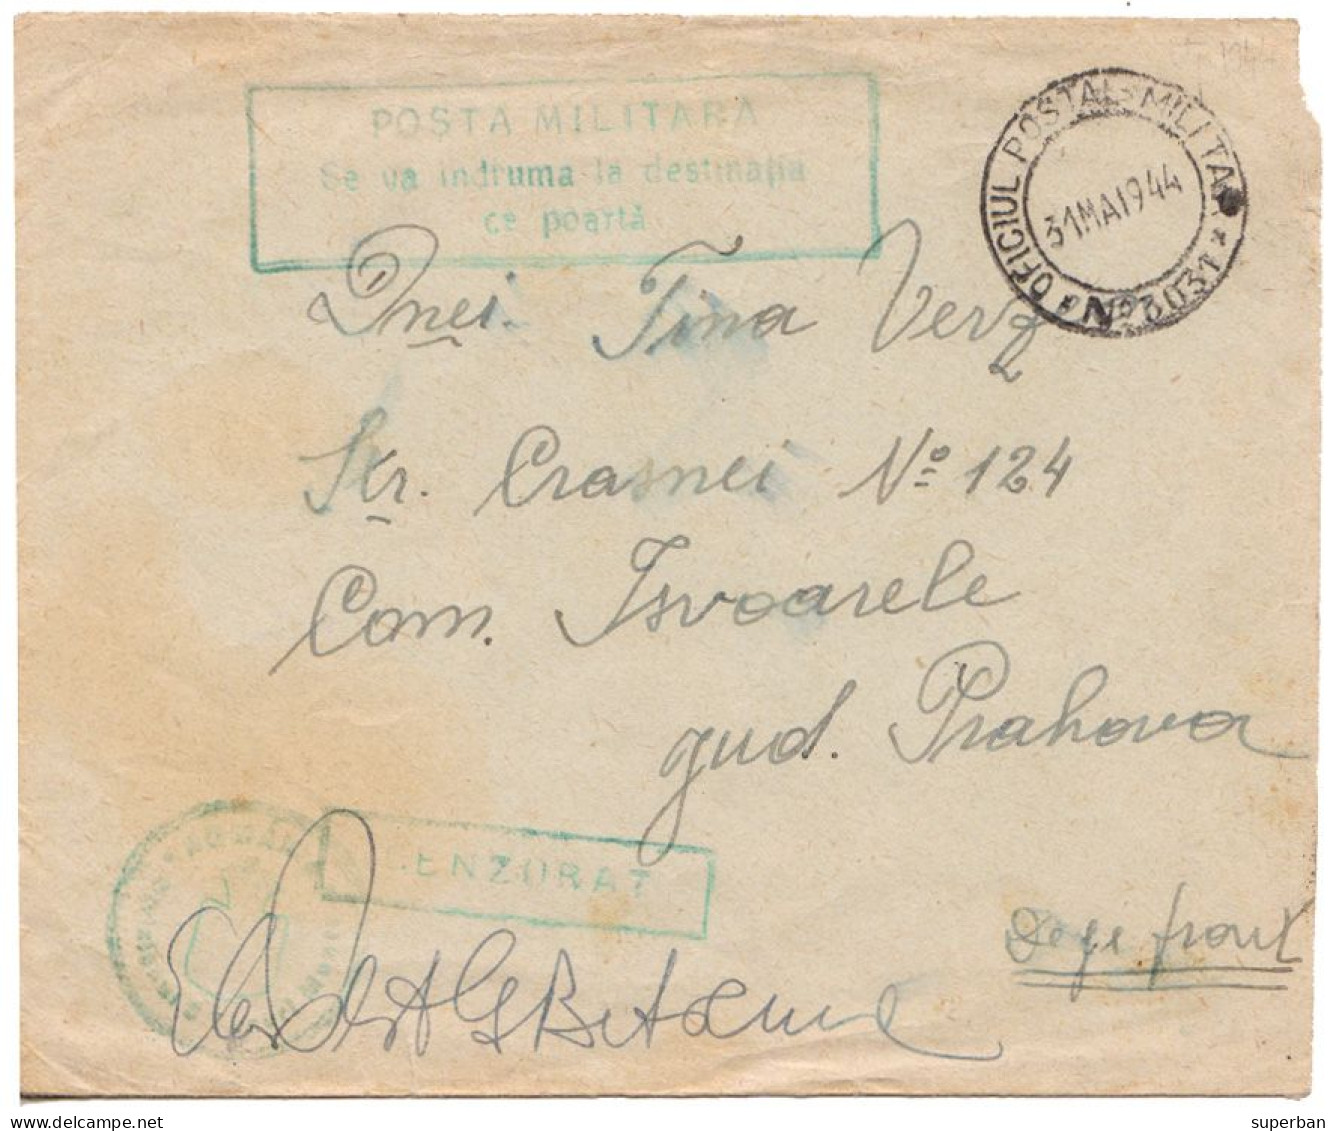 POSTA MILITARA
Se va îndruma la destinația
ce poartă
OFICIUL POSTAL MILITAR
31 MAI 944
* No 3031 *
Dnei. Tina Verz
Str. Crasnei No 124
Com. Isvoarele
jud. Prahova
CENZURAT
De pe front
www.delcampe.net
superban